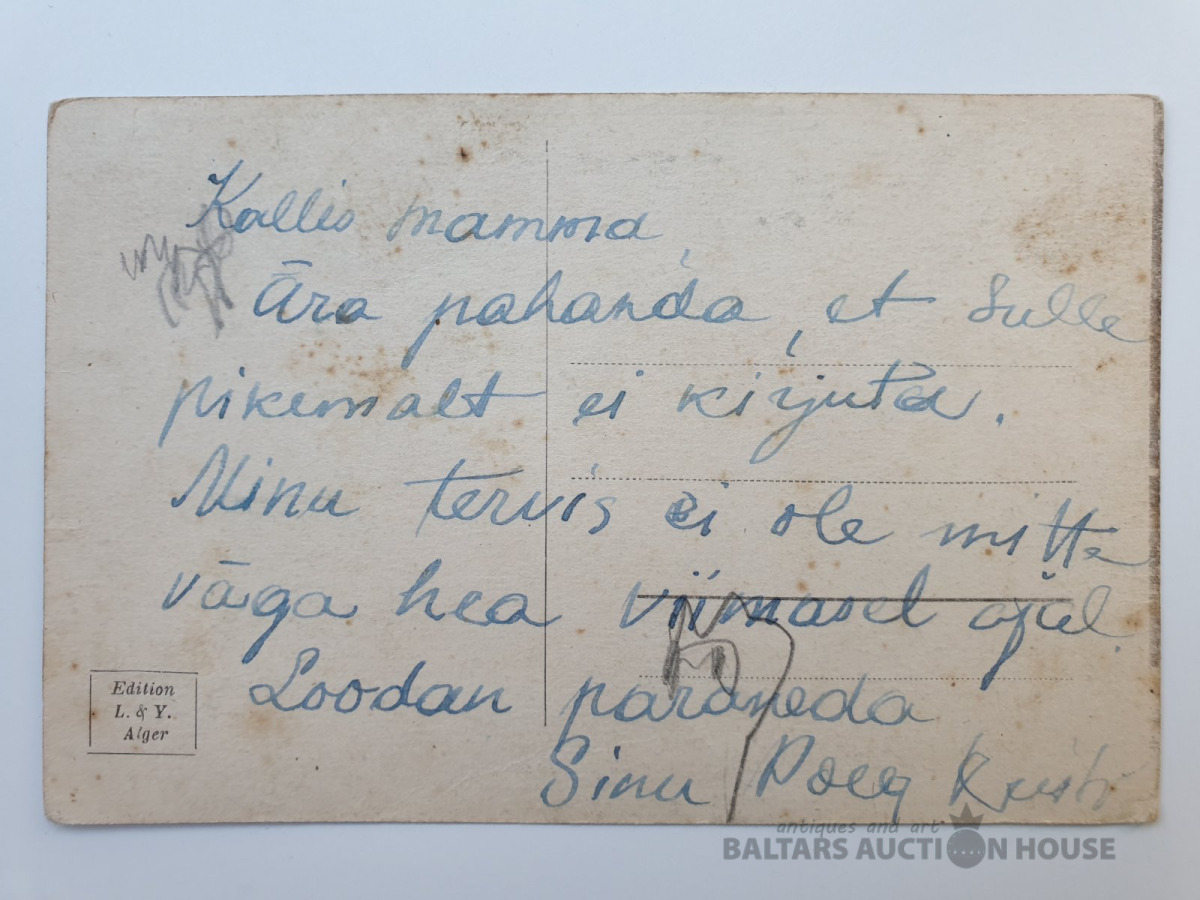 Kallis mamma,
Ära pahanda, et Sulle
pikemalt ei kirjuta.
Minu tervis ei ole mitte
väga hea viimasel ajal.
Loodan paraneda
Sinu Poeg
Edition
L. & Y.
Alger
antiques and art
BALTARS AUCTION HOUSE